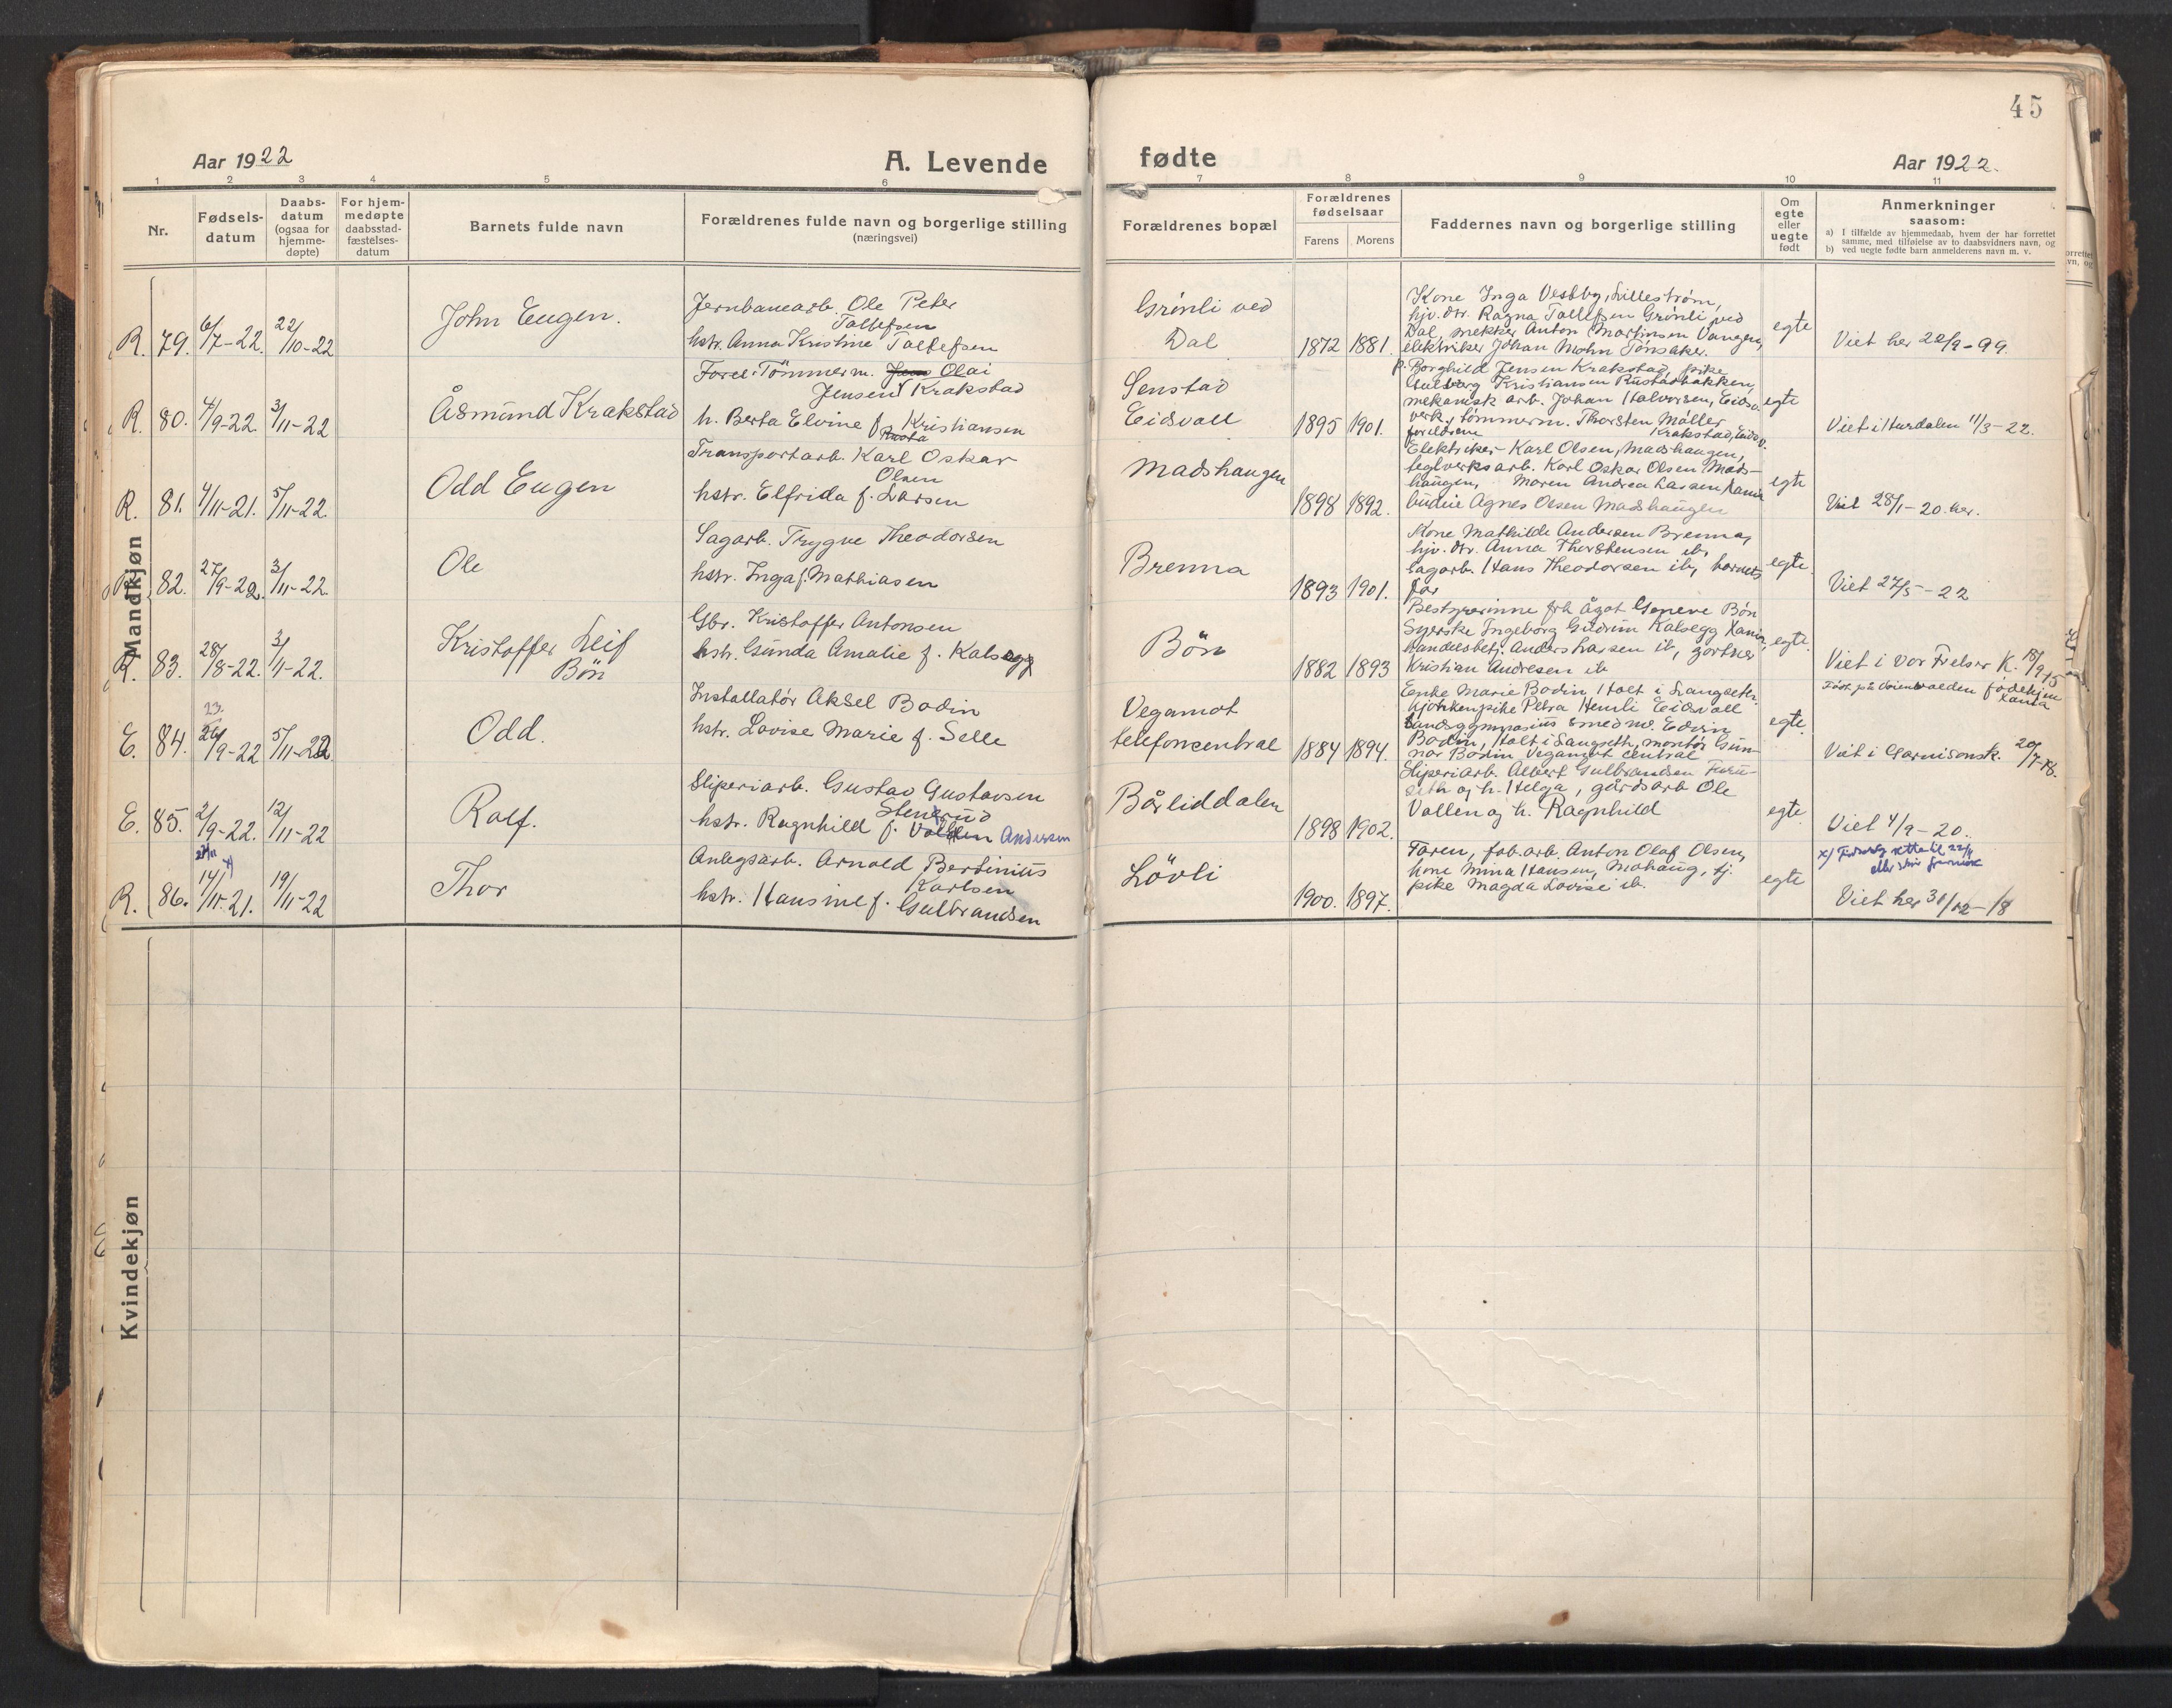 45
Aar 1922
A. Levende
fødte
Aar 1922.
1 2 3 4 5 6 7 8 9 10 11
Nr.
Fødsels-
datum
Daabs-
datum
(ogsaa for
hjemme-
døpte)
For hjem-
medøpte
daabsstad-
fæstelses-
datum
Barnets fulde navn
Forældrenes fulde navn og borgerlige stilling
(næringsvei)
Forældrenes bopæl
Forældrenes
fødselsaar
Farens Morens
Faddernes navn og borgerlige stilling
Om
egte
eller
uegte
født
Anmerkninger
saasom:
a) I tilfælde av hjemmedaab, hvem der har forrettet
samme, med tilføielse av to daabsvidners navn, og
b) ved uegte fødte barn anmelderens navn m. v.
Mandkjøn
R. 79. 6/7-22. 22/10-22
John Eugen.
Jernbanearb. Ole Peter
Tollefsen
hstr. Anna Kristine Tollefsen
Grønli ved
Dal
1872 1881.
Kone Inga Vestby, Lillestrøm,
hjv. dtr. Ragna Tollefsen Grønli ved
Dal, mekker Anton Martinsen Vangen,
elektriker Johan Mohn Tønsaker.
egte
Viet her 20/9-99.
R. 80. 4/9-22. 3/11-22
Åsmund Krakstad
Forel: Tömmerm. Jens Olai
Jensen Krakstad
h. Berta Elvine f. Kristiansen
Rusta
Senstad
Eidsvoll
1895 1901.
p. Borghild Jensen Krakstad, pike
Gulborg Kristiansen Rustadbakken,
mekanisk arb. Johan Halvorsen, Eidsv.
verk, tømmerm. Thorsten Møller
foreldrene Krakstad, Eidsv.
egte
Viet i Hurdalen 11/3-22.
R. 81. 4/11-21. 5/11-22.
Odd Eugen
Transportarb. Karl Oskar
Olsen
hstr. Elfrida f. Larsen
Madshaugen
1898 1892.
Elektriker Karl Olsen, Madshaugen,
teglverksarb. Karl Oskar Olsen Mads-
haugen, Maren Andrea Larsen Xania
budeie Agnes Olsen Madshaugen
egte
Viet 28/1-20. her.
R. 82. 27/9-22. 3/11-22.
Ole
Sagarb. Trygve Theodorsen
hstr. Inga f. Mathiasen
Brenna
1893 1901.
Kone Mathilde Andersen Brenna,
hjv. dtr. Anna Thorstensen ib,
sagarb. Hans Theodorsen ib, barnets
far
egte.
Viet 27/5-22
R. 83. 28/8-22. 3/11-22.
Kristoffer Leif
Bön
Gbr. Kristoffer Antonsen
hstr. Gunda Amalie f. Kalsegg
Bön
1882 1893
Bestyrerinne frk Ågot Geneve Bön
Syerske Ingeborg Gudrun Kalsegg Xania,
handelsbetj. Anders Larsen ib, gartner
Kristian Andresen ib
egte.
Viet i Vor Frelser K. 18/9 15
Født på fødehjem
Xania
E. 84. 23. 26/9-22 5/11-22
Odd.
Installatör Aksel Bodin
hstr. Lovise Marie f. Selle
Vegamot
telefoncentral
1884 1894.
Enke Marie Bodin, Holt i Langseth,
kjøkkenpike Petra Hemli Eidsvoll
landsgymnasius smedm. Edvin
Bodin, Holt i Langseth, montör Gun-
nar Bodin Vegamot central
egte
Viet i Garnisonsk. 20/7-18.
E. 85. 2/9-22. 12/11-22
Rolf.
Sliperiarb. Gustav Gustavsen
Stenerud
hstr. Ragnhild f. Vollen Andersen
Bårliddalen
1898 1902.
Sliperiarb. Albert Gulbrandsen Furu-
seth og h. Helga, gårdsarb Ole
Vollen og h. Ragnhild
egte
Viet 4/9-20.
R. 86. 14/11-21. 19/11-22
27/11 x)
Thor
Anlegsarb. Arnold Bertinius
Karlsen
hstr. Hansine f. Gulbrandsen
Lövli
1900. 1897.
Faren, fab. arb. Anton Olaf Olsen,
kone Mina Hansen, Mohaug, tj.
pike Magda Lovise ib.
egte
x)
Viet her 31/12-18
Kvindekjøn